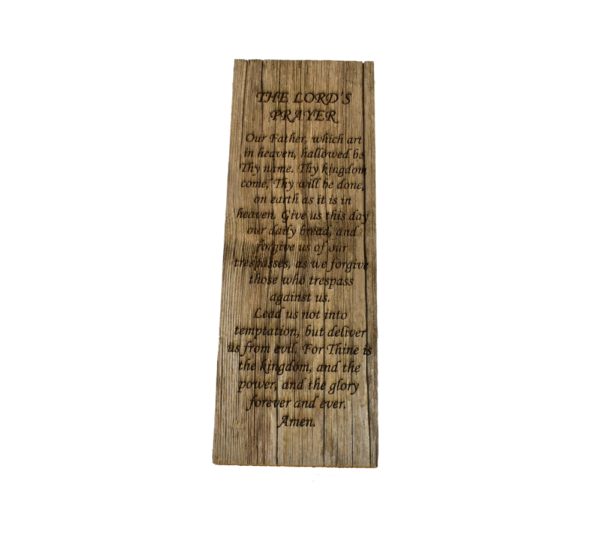 THE LORD'S
PRAYER
Our Father, which art
in heaven, hallowed be
Thy name. Thy kingdom
come, Thy will be done,
on earth as it is in
heaven. Give us this day
our daily bread, and
forgive us of our
trespasses, as we forgive
those who trespass
against us.
Lead us not into
temptation, but deliver
us from evil. For Thine is
the kingdom, and the
power, and the glory
forever and ever.
Amen.